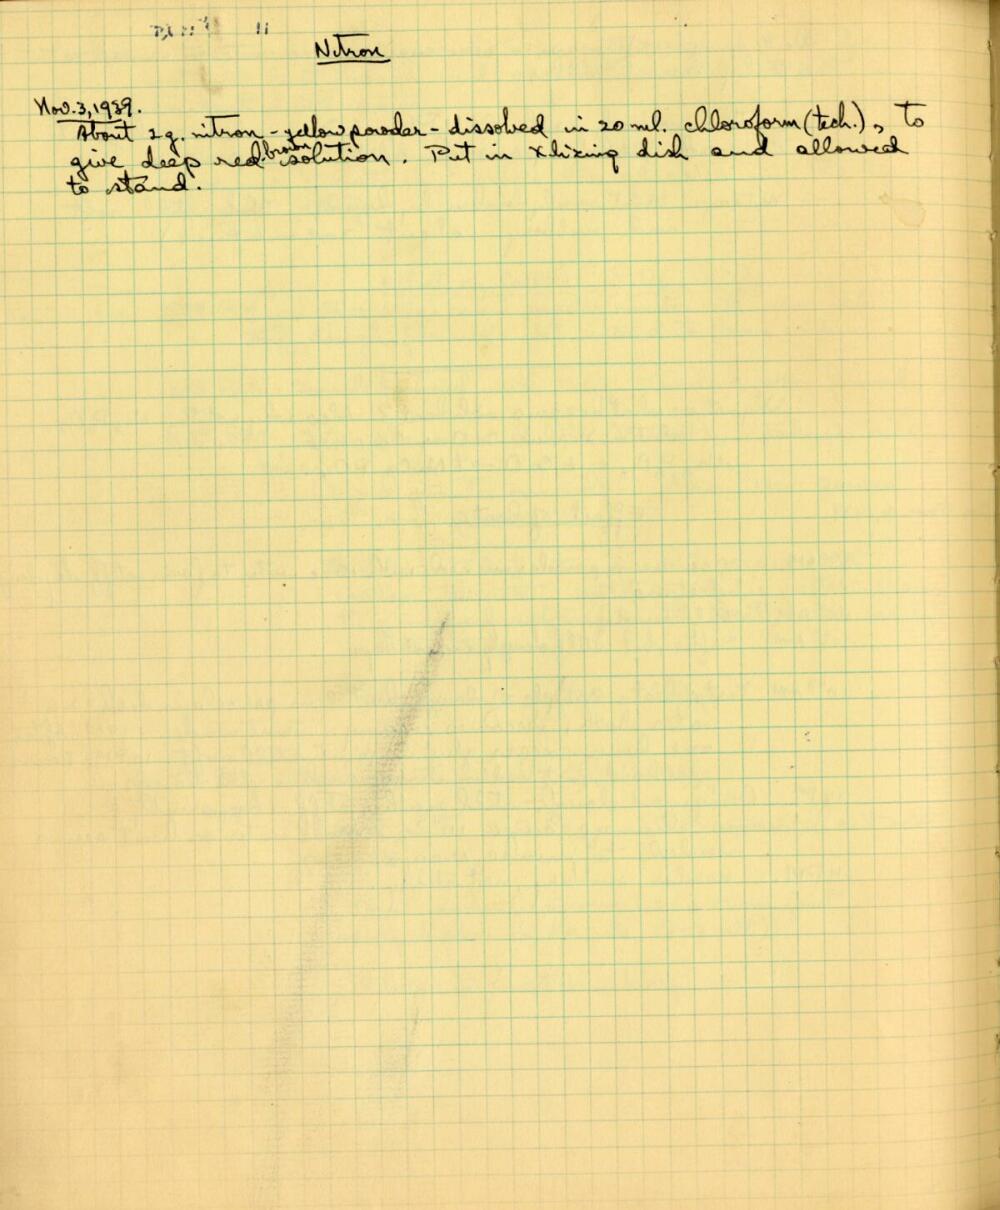 Nitron
Nov. 3, 1939.
About 2 g. nitron - yellow powder - dissolved in 20 ml. chloroform (tech.), to
give deep red-brown solution. Put in xlizing dish and allowed
to stand.